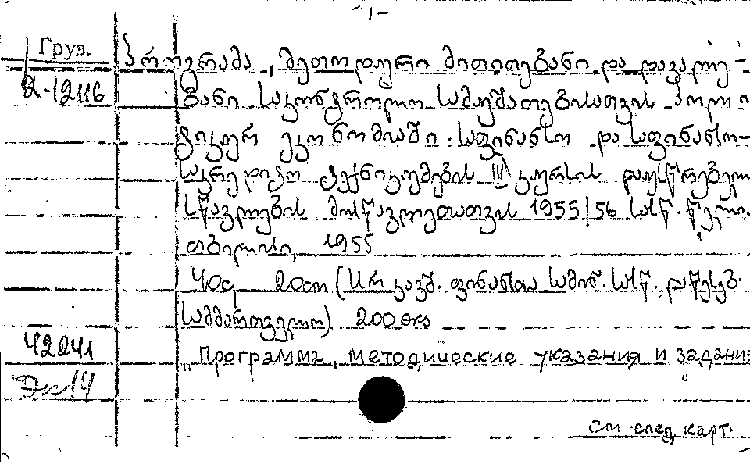 -1-
Груз.
პროგრამა, მეთოდური მითითებანი და დავალე-
2-12116
ბანი საკონტროლო სამუშაოებისათვის პოლი-
ტიკურ ეკონომიაში საფინანსო და საფინანსო-
საკრედიტო ტექნიკუმების III კურსის დაუსწრებელი
სწავლების მოსწავლეთათვის 1955/56 სას წ. წელი.
თბილისი, 1955
40გ 20cm (სსრ კავშ. ფინანსთა სამინ. სას წ. დაწესებ.
სამმართველო) 200 ეგზ
42241
"Программа, методические указания и задани
См след карт.